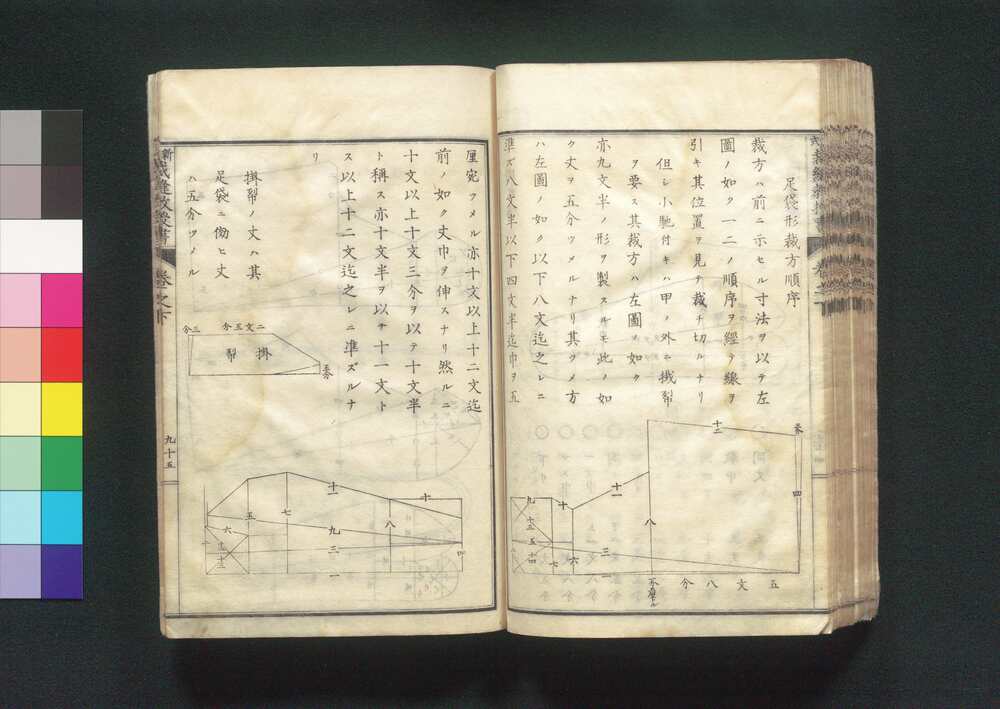 足袋形裁方順序
裁方ハ前ニ示セル寸法ヲ以テ左
圖ノ如ク一二ノ順序ヲ經テ線ヲ
引キ其位置ヲ見テ裁チ切ルナリ
但シ小馳付キハ甲ノ外ニ掛幇
ヲ要ス其裁方ハ左圖ノ如ク
亦九文半ノ形ヲ製スルモ此ノ如
ク丈ヲ五分ツメルナリ其ツメ方
ハ左圖ノ如ク以下八文迄之レニ
準ズ八文半以下四文半迄巾ヲ五
十二
四
十一
八
九
十
五
三
七
六
一
五文八分
厘宛ツメル亦十文以上十二文迄
前ノ如ク丈巾ヲ伸スナリ然ルニ
十文以上十文三分ヲ以テ十文半
ト稱ス亦十文半ヲ以テ十一文ト
ス以上十二文迄之レニ準ズルナ
リ
掛幇ノ丈ハ其
足袋ニ傚ヒ丈
ハ五分ツメル
二文三分
三分
掛幇
十一
十
五
七
八
六
九
三
四
一
新
裁縫敎授書
卷之下
九十五